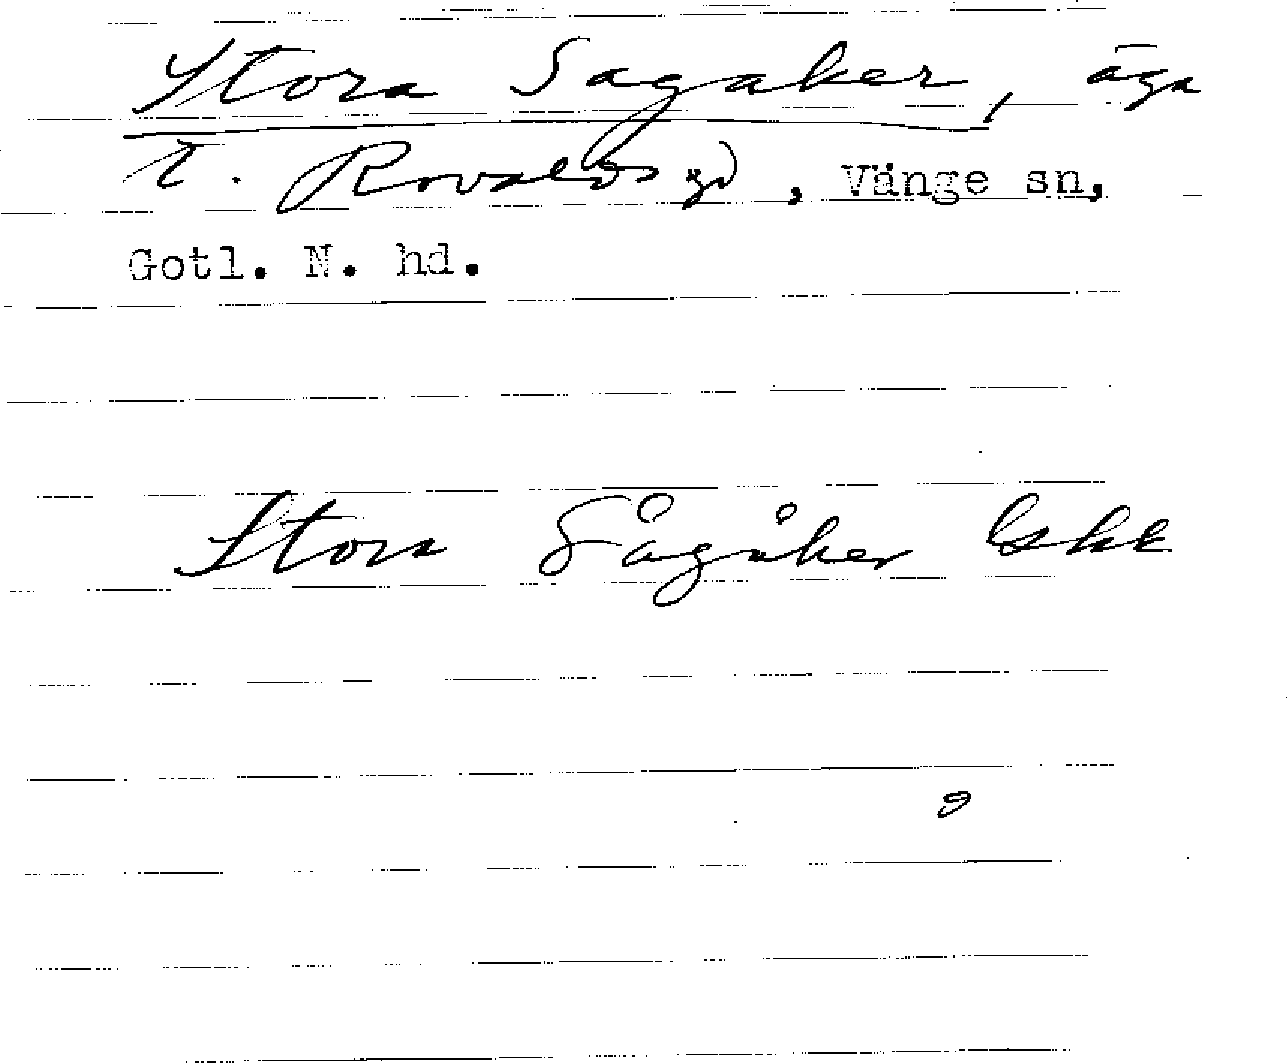 Stora Sagaker, äga
t. Rovalds gd, Vänge sn,
Gotl. N. hd.
Stora Sågåker